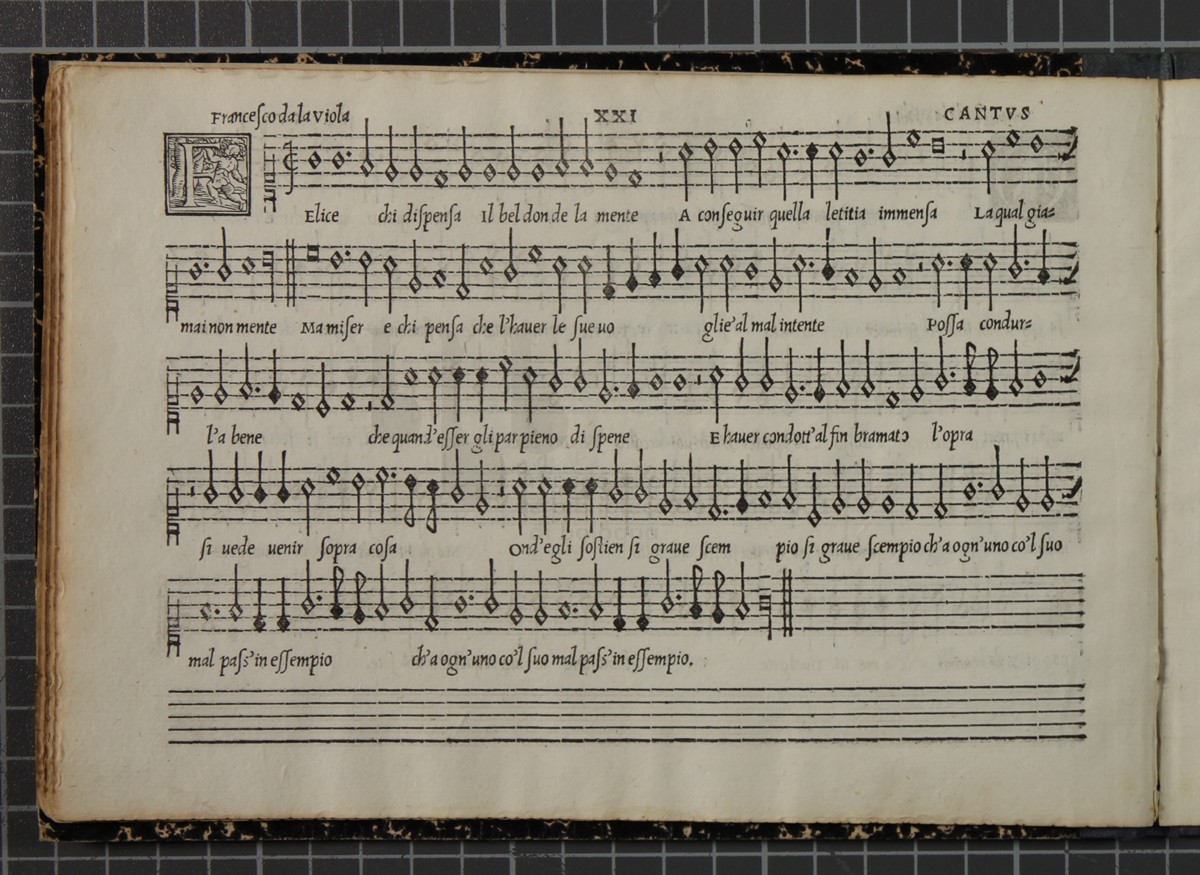 Francesco da la Viola XXI CANTVS
FElice chi dispensa Il bel don de la mente A conseguir quella letitia immensa La qual gia=
mai non mente Ma miser e chi pensa che l'hauer le sue uo glie'al mal intente Possa condur=
l'a bene che quand'esser gli par pieno di spene E hauer condott'al fin bramato l'opra
si uede uenir sopra cosa Ond'egli sostien si graue scem pio si graue scempio ch'a ogn'uno co'l suo
mal pass'in essempio ch'a ogn'uno co'l suo mal pass'in essempio.